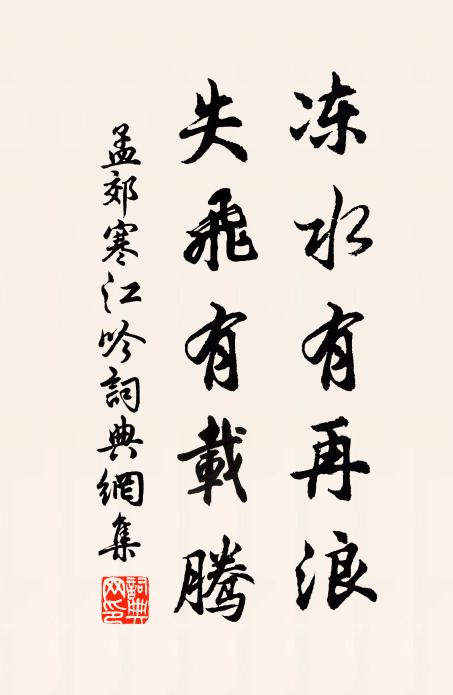 冻水有再浪
失飛有載騰
孟郊寒江吟詞典網集
詞典网印